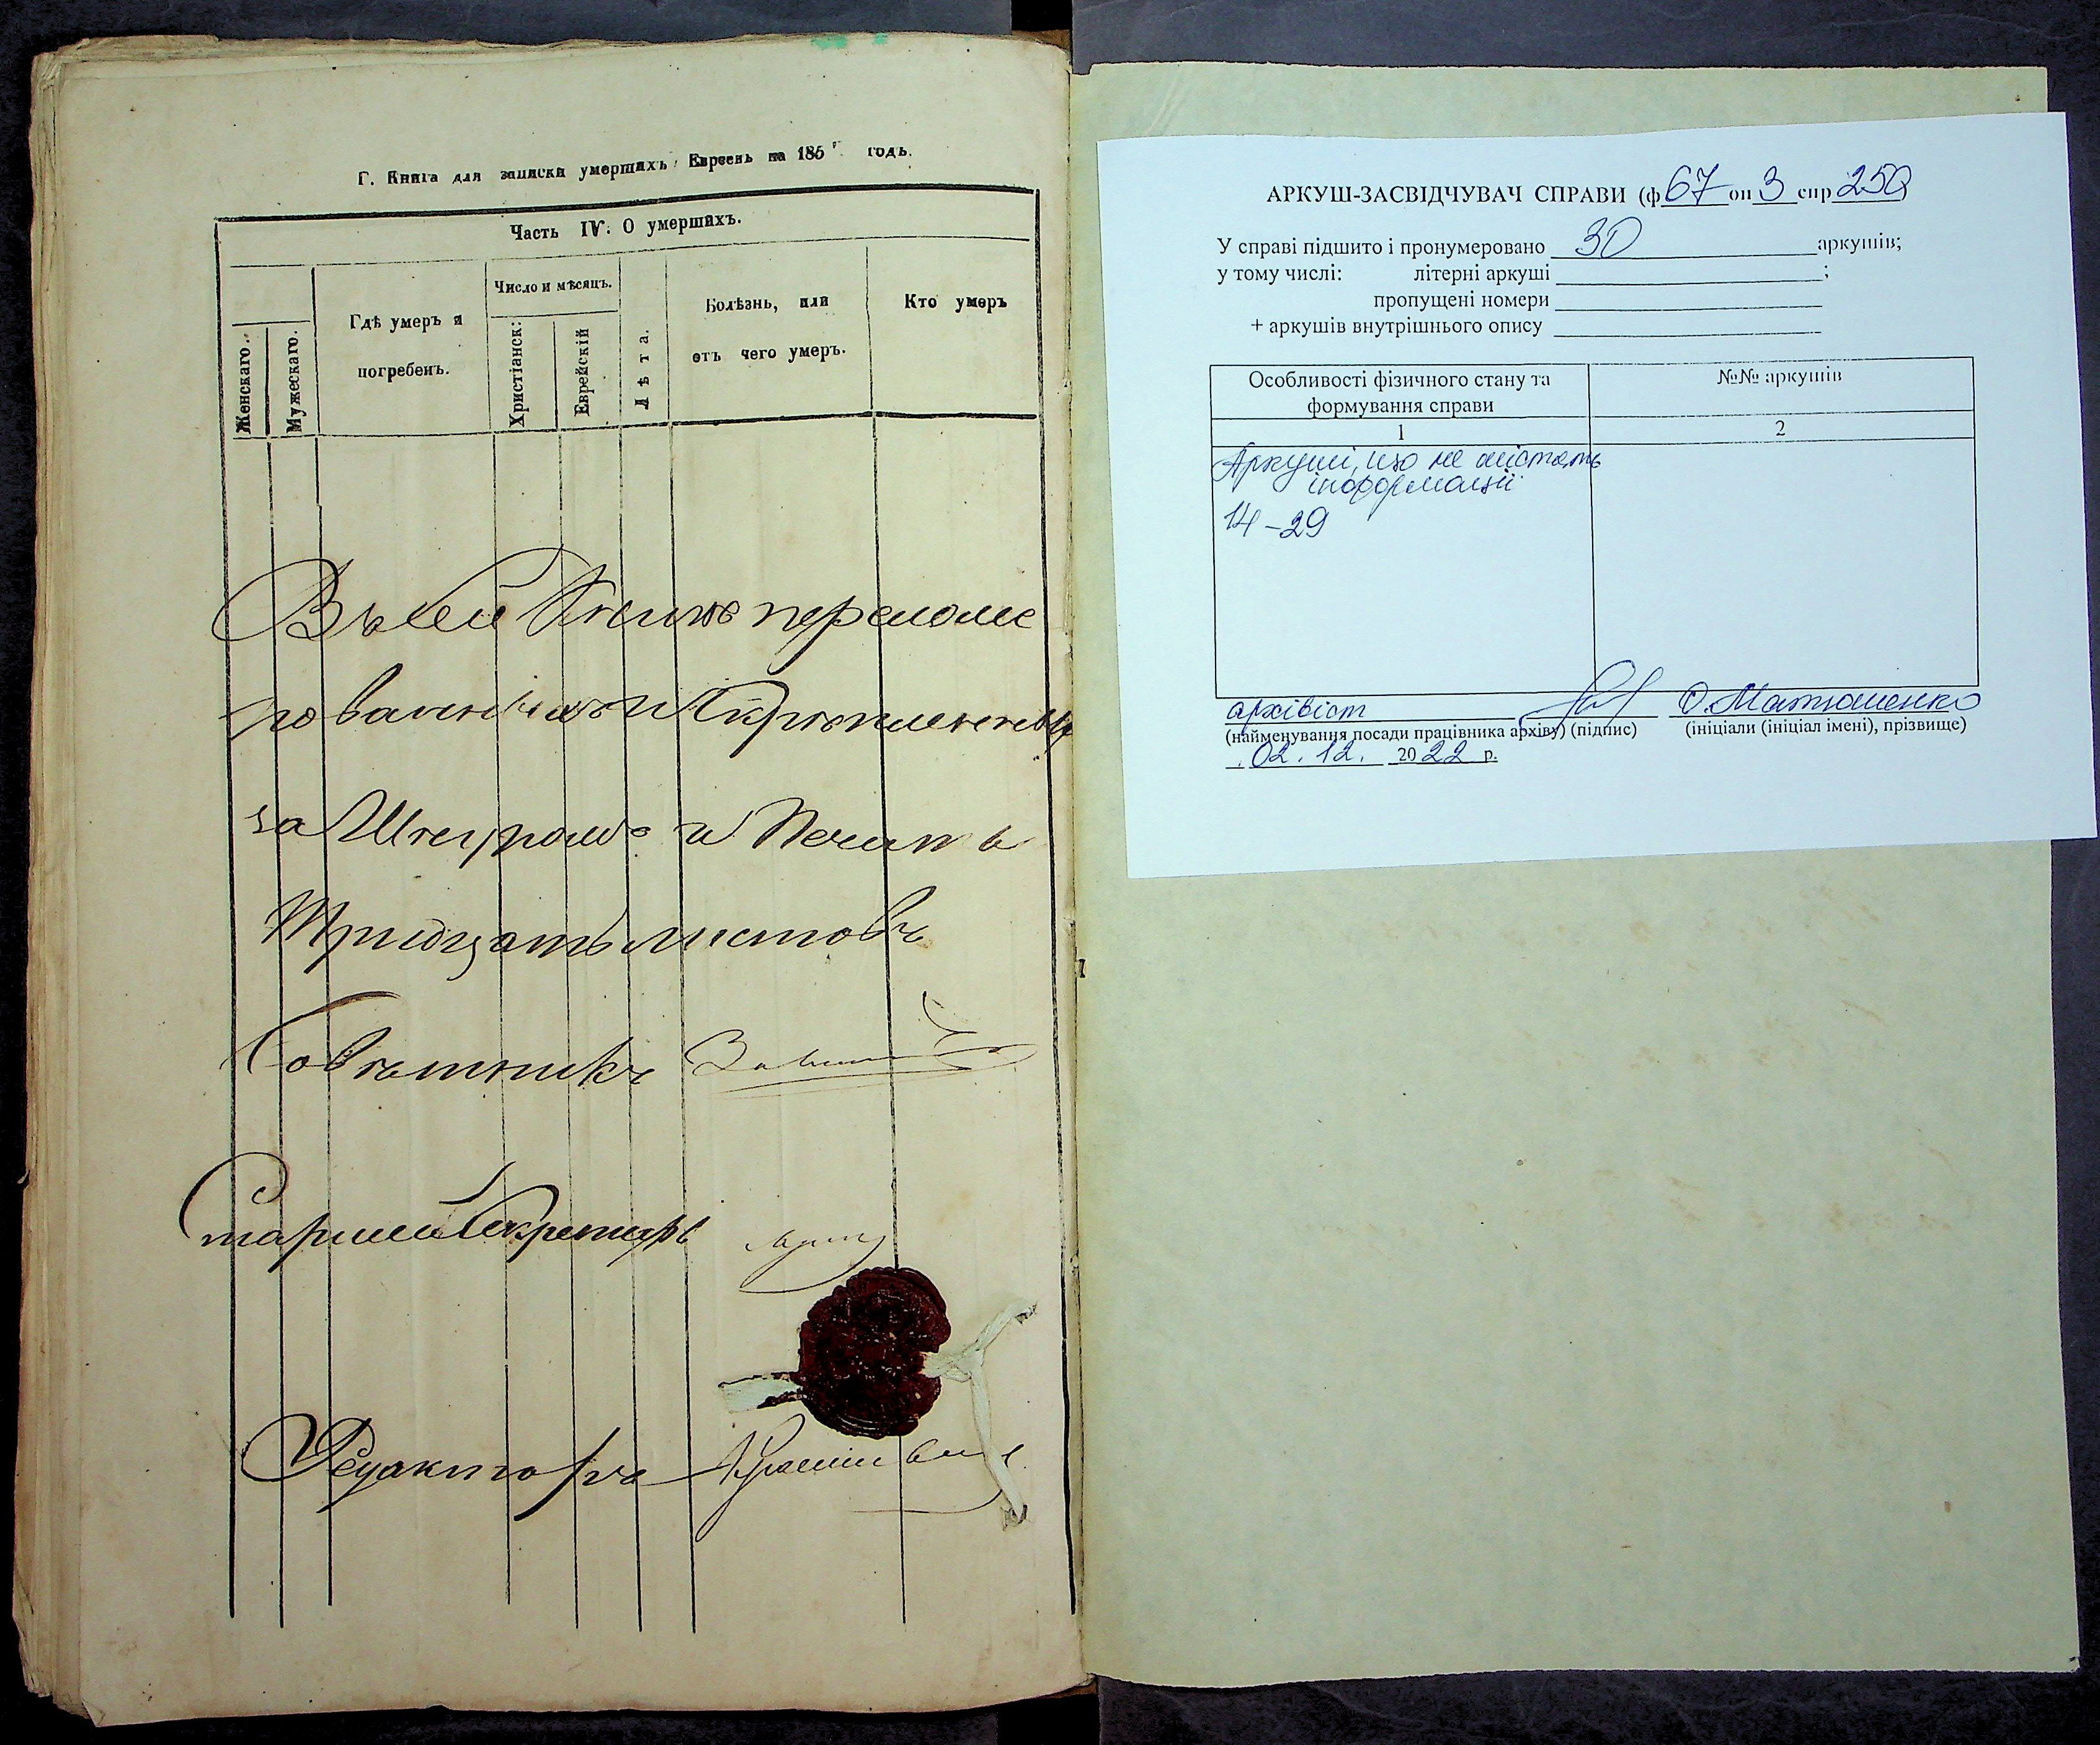 Г. Книга для записки умершихъ Евреевъ на 185 годъ.
Часть IV. О умершихъ.
Женскаго.
Мужескаго.
Гдѣ умеръ и
погребенъ.
Число и мѣсяцъ.
Христіанск:
Еврейскій
Лѣта.
Болѣзнь, или
отъ чего умеръ.
Кто умеръ
Въ сей Книгѣ перенуме
рованныхъ и скрѣпленныхъ
за Шнуромъ и Печатью
Тридцать листовъ
Совѣтникъ
Старшій Секретарь
Редакторъ
АРКУШ-ЗАСВІДЧУВАЧ СПРАВИ (ф 67 оп 3 спр 250)
У справі підшито і пронумеровано 30 аркушів;
у тому числі: літерні аркуші ;
пропущені номери
+ аркушів внутрішнього опису
Особливості фізичного стану та
формування справи
№№ аркушів
1
2
Аркуші, що не містять
інформації
14-29
архівіст О. Матюшенко
(найменування посади працівника архіву) (підпис) (ініціали (ініціал імені), прізвище)
02. 12. 2022 р.